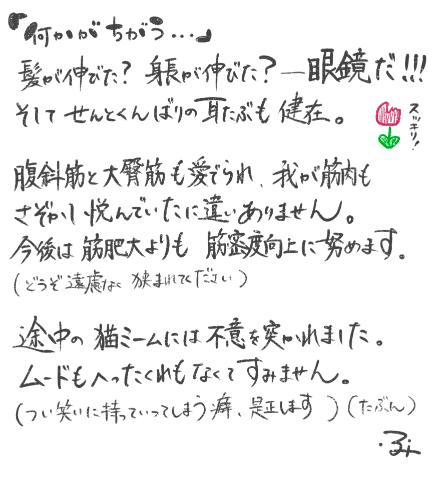 『何かがちがう...』
髪が伸びた？身長が伸びた？―眼鏡だ!!!
そして せんとくんばりの耳たぶも健在。
スッキリ！
腹斜筋と大臀筋も愛でられ、我が筋肉も
さぞかし悦んでいたに違いありません。
今後は筋肥大よりも 筋密度向上に努めます。
(どうぞ遠慮なく 狭まれてください)
途中の猫ミームには不意を突かれました。
ムードもへったくれもなくてすみません。
(つい笑いに持っていってしまう癖、是正します)(たぶん)